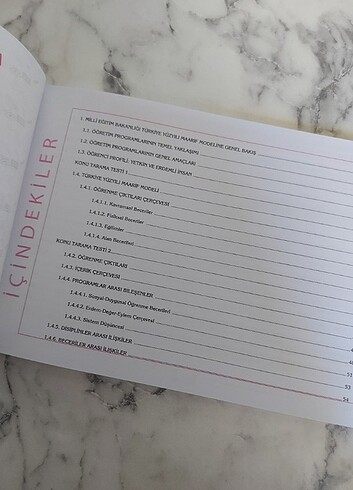 İÇİNDEKİLER
1. MİLLİ EĞİTİM BAKANLIĞI TÜRKİYE YÜZYILI MAARİF MODELİNE GENEL BAKIŞ
1.1. ÖĞRETİM PROGRAMLARININ TEMEL YAKLAŞIMI
1.2. ÖĞRETİM PROGRAMLARININ GENEL AMAÇLARI
1.3. ÖĞRENCİ PROFİLİ: YETKİN VE ERDEMLİ İNSAN
KONU TARAMA TESTİ 1
1.4. TÜRKİYE YÜZYILI MAARİF MODELİ
1.4.1. ÖĞRENME ÇIKTILARI ÇERÇEVESİ
1.4.1.1. Kavramsal Beceriler
1.4.1.2. Fiziksel Beceriler
1.4.1.3. Eğilimler
1.4.1.4. Alan Becerileri
KONU TARAMA TESTİ 2
1.4.2. ÖĞRENME ÇIKTILARI
1.4.3. İÇERİK ÇERÇEVESİ
1.4.4. PROGRAMLAR ARASI BİLEŞENLER
1.4.4.1. Sosyal-Duygusal Öğrenme Becerileri
1.4.4.2. Erdem-Değer-Eylem Çerçevesi
1.4.4.3. Sistem Düşüncesi 51
1.4.5. DİSİPLİNLER ARASI İLİŞKİLER 53
1.4.6. BECERİLER ARASI İLİŞKİLER 54